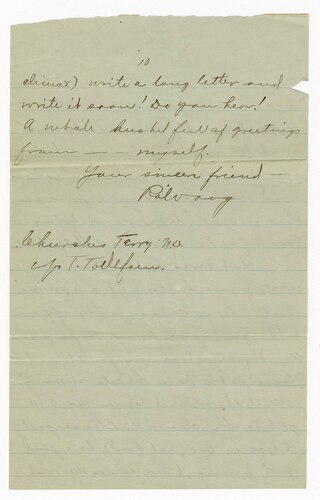 10
climax) write a long letter and
write it soon! Do you hear!
A whole bushel full of greetings
from — myself.
Your sincer friend —
Rölvaag
Churches Ferry N.D.
c/o T. Tollefsen.